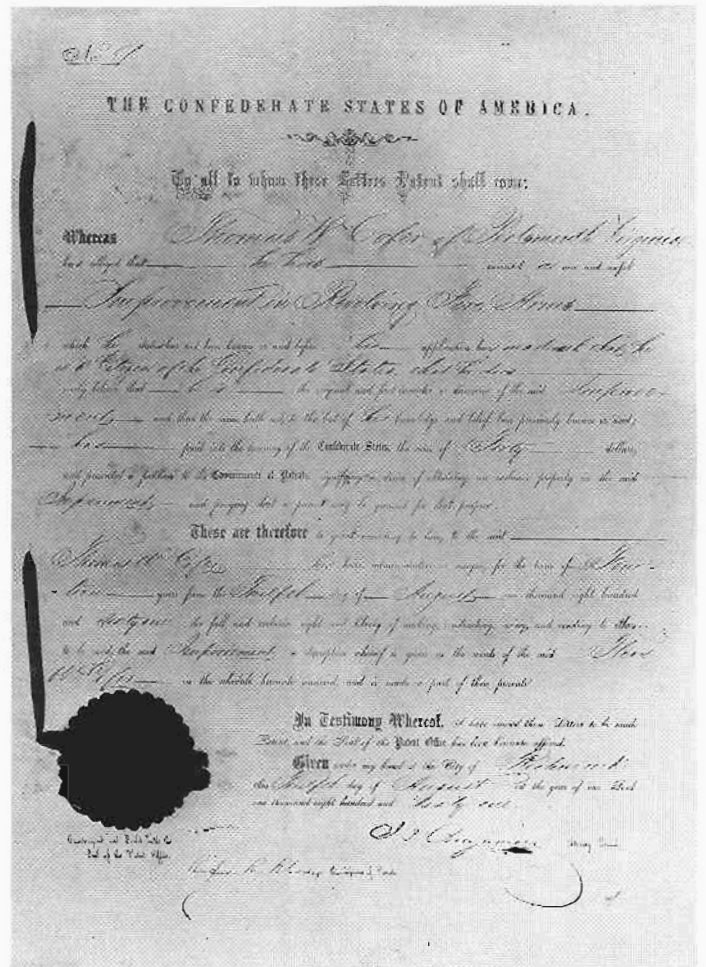 THE CONFEDERATE STATES OF AMERICA.
To all to whom these Letters Patent shall come:
Whereas Thomas W Cofer of Portsmouth Virginia
has alleged that he has invented a new and useful
Improvement in Revolving Fire Arms
which he states has not been known or used before his application has made oath that he
is a Citizen of the Confederate States, that he does
verily believe that he is the original and first inventor or discoverer of the said Improve-
ments and that the same hath not to the best of his knowledge and belief been previously known or used;
has paid into the treasury of the Confederate States, the sum of Forty dollars,
and presented a petition to the Commissioner of Patents signifying a desire of obtaining an exclusive property in the said
Improvements and praying that a patent may be granted for that purpose.
These are therefore to grant according to law, to the said
Thomas W. Cofer his heirs administrators or assigns, for the term of Four-
teen years from the Twelfth day of August one thousand eight hundred
and sixty one the full and exclusive right and liberty of making, constructing, using and vending to others
to be used, the said Improvements a description whereof is given in the words of the said Thos
W Cofer in the schedule hereunto annexed, and is made a part of these presents.
In Testimony Whereof, I have caused these Letters to be made
Patent, and the Seal of the Patent Office has been hereunto affixed.
Given under my hand at the City of Richmond
this Twelfth day of August in the year of our Lord
one thousand eight hundred and sixty one.
Countersigned and Sealed with the
Seal of the Patent Office.